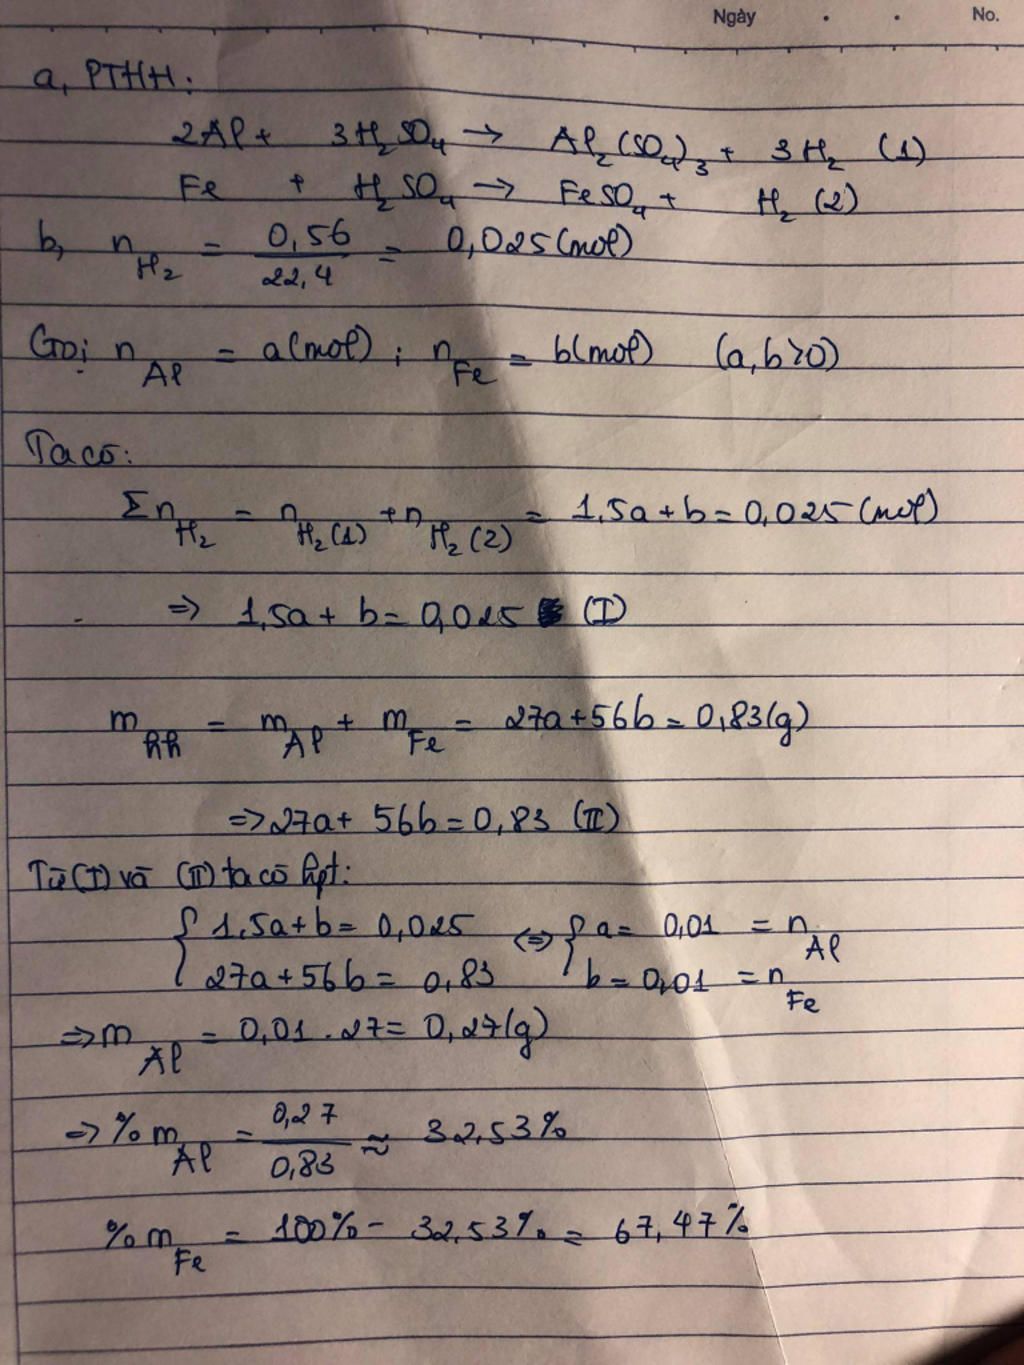 Ngày . . No.
a, PTHH:
2Al + 3H₂SO₄ → Al₂(SO₄)₃ + 3H₂ (1)
Fe + H₂SO₄ → FeSO₄ + H₂ (2)
b, n_H₂ = 0,56/22,4 = 0,025 (mol)
Gọi n_Al = a(mol) ; n_Fe = b(mol) (a,b>0)
Ta có:
Σn_H₂ = n_H₂(1) + n_H₂(2) = 1,5a + b = 0,025 (mol)
⇒ 1,5a + b = 0,025 (I)
m_hh = m_Al + m_Fe = 27a + 56b = 0,83(g)
⇒ 27a + 56b = 0,83 (II)
Từ (I) và (II) ta có hpt:
{ 1,5a + b = 0,025 ⇔ { a = 0,01 = n_Al
27a + 56b = 0,83 b = 0,01 = n_Fe
⇒ m_Al = 0,01 . 27 = 0,27(g)
⇒ %m_Al = 0,27/0,83 ≈ 32,53%
%m_Fe = 100% - 32,53% = 67,47%